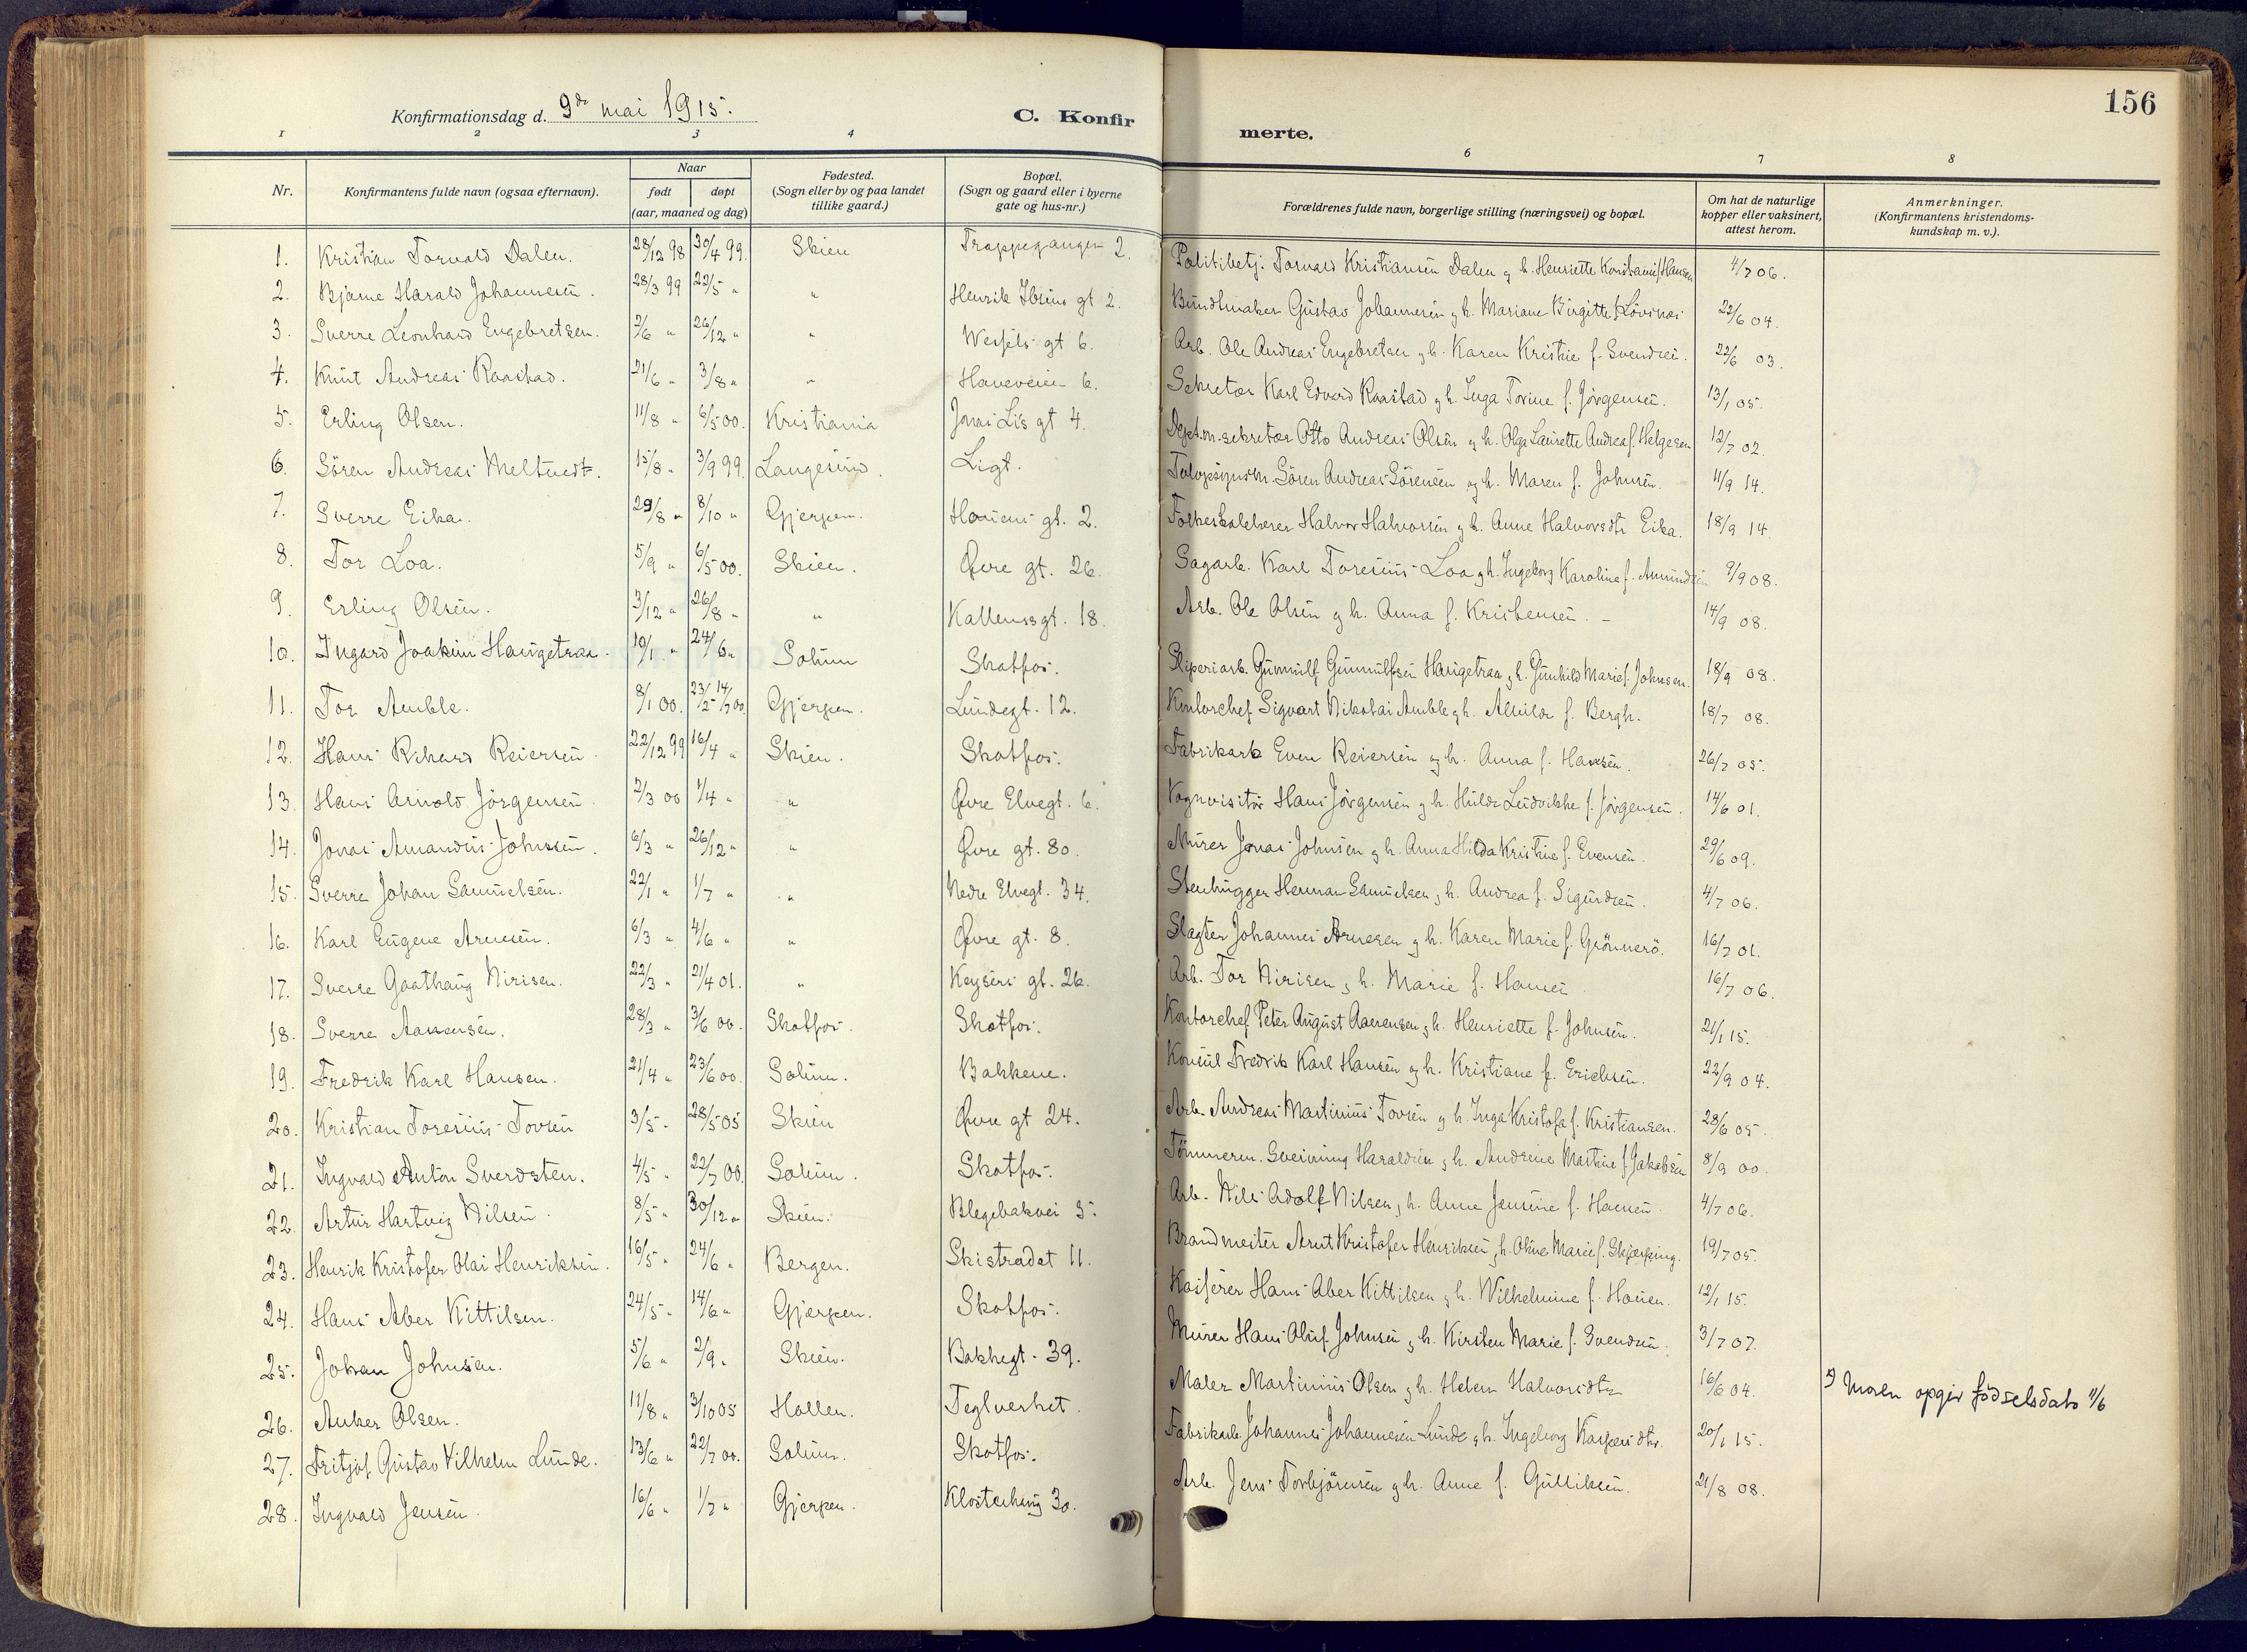 156
Konfirmationsdag d. 9de mai 1915.
C. Konfirmerte.
1 2 3 4 6 7 8
Nr. Konfirmantens fulde navn (ogsaa efternavn). Naar født døpt (aar, maaned og dag) Fødested. (Sogn eller by og paa landet tillike gaard.) Bopæl. (Sogn og gaard eller i byerne gate og hus-nr.) Forældrenes fulde navn, borgerlige stilling (næringsvei) og bopæl. Om hat de naturlige kopper eller vaksinert, attest herom. Anmerkninger. (Konfirmantens kristendoms-kundskap m. v.).
1. Kristian Torvald Dalen. 28/12 98 30/4 99. Skien Trappegangen 2. Politibetj. Torvald Kristiansen Dalen og h. Henriette f. Hansen 4/7 06.
2. Bjarne Harald Johannesen. 28/3 99 22/5 " " Henrik Ibsens gt 2. Bundtmaker Gustav Johannesen og h. Mariane Birgitte f. 22/6 04.
3. Sverre Leonhard Engebretsen. 2/6 " 26/12 " " Wessels gt 6. Arb. Ole Andreas Engebretsen og h. Karen Kristine f. Svendsen. 22/6 03.
4. Knut Andreas Raastad. 21/6 " 3/8 " " Haveveien 6. Sekretær Karl Edvard Raastad og h. Inga Torine f. Jörgensen. 13/1 05.
5. Erling Olsen. 11/8 " 6/5 00. Kristiania Jonas Lis gt 4. Otto Andreas Olsen og h. Olga Laurette Andrea f. Helgesen 12/7 02.
6. Sören Andreas Meltvedt. 15/8 " 3/9 99. Langesund. Ligt. Sören Andreas Sörensen og h. Maren f. Johnsen. 11/9 14.
7. Sverre Eika. 29/8 " 8/10 " Gjerpen. Hansens gt. 2. Folkeskolelærer Halvor Halvorsen og h. Anne Halvorsdtr Eika. 18/9 14.
8. Tor Loa. 5/9 " 6/5 00. Skien. Øvre gt. 26. Sagarb. Karl Toresius Loa og h. Ingeborg Karoline f. Amundsen 9/9 08.
9. Erling Olsen. 3/12 " 26/8 " " Kallemsgt. 18. Arb. Ole Olsen og h. Anna f. Kristensen. 14/9 08.
10. Ingard Joakim Haugetraa. 10/1 " 24/6 " Solum Skotfos. Sliperiarb. Gunnulf Gunnulfsen Haugetraa og h. Gunhild Marie f. Johnsen. 18/9 08.
11. Tor Amble. 8/1 00. Gjerpen. Lundegt. 12. Kontorchef Sigvart Nikolai Amble og h. f. Bergh. 18/7 08.
12. Hans Rikard Reiersen. 22/12 99 16/4 " Skien. Skotfos. Fabrikarb. Even Reiersen og h. Anna f. Hansen. 26/7 05.
13. Hans Arnold Jörgensen. 2/3 00 1/4 " " Øvre Elvegt. 6. Vognvisitör Hans Jörgensen og h. Hulda Ludvikke f. Jörgensen. 14/6 01.
14. Jonas Amandus Johnsen. 6/3 " 26/12 " " Øvre gt. 80. Murer Jonas Johnsen og h. Anna Hilda Kristine f. Evensen. 29/6 09.
15. Sverre Johan Samuelsen. 22/1 " 1/7 " " Nedre Elvegt. 34. Stenhugger Herman Samuelsen og h. Andrea f. Sigurdsen. 4/7 06.
16. Karl Eugene Arnesen. 6/3 " 4/6 " " Øvre gt. 8. Slagter Johannes Arnesen og h. Karen Marie f. Grönnerö. 16/7 01.
17. Sverre Gaathaug Nirisen. 22/3 " 21/4 01. " Keysers gt. 26. Arb. Tor Nirisen og h. Marie f. Hansen. 16/7 06.
18. Sverre Aanensen. 28/3 " 3/6 00. Skotfos. Skotfos. Kontorchef Peter August Aanensen og h. Henriette f. Johnsen. 21/1 15.
19. Fredrik Karl Hansen. 21/4 " 23/6 00. Solum. Bakkene. Konsul Fredrik Karl Hansen og h. Kristiane f. Erichsen. 22/9 04.
20. Kristian Toresius Tovsen 3/5 " 28/5 05 Skien Øvre gt 24. Arb. Andreas Martinius Tovsen og h. Inga Kristofa f. Kristiansen. 28/6 05.
21. Ingvald Anton Sverdsten. 4/5 " 22/7 00. Solum. Skotfos. Tömmerm. Sveinung Haraldsen og h. Andrine Martine f. Jakobsen 8/9 00.
22. Artur Hartvig Nilsen. 8/5 " 30/12 " Skien. Blegebakvei 5. Arb. Nils Adolf Nilsen og h. Anne Jensine f. Hansen. 4/7 06.
23. Henrik Kristofer Olai Henriksen. 16/5 " 24/6 " Bergen. Skistredet 11. Brandmester Arnt Kristofer Henriksen og h. Oline Marie f. 19/7 05.
24. Hans Aber Kittilsen. 24/5 " 14/6 " Gjerpen. Skotfos. Kasserer Hans Aber Kittilsen og h. Wilhelmine f. Hansen. 12/1 15.
25. Johan Johnsen. 5/6 " 2/9 " Skien. Bakkegt. 39. Murer Hans Oluf Johnsen og h. Kirsten Marie f. Svendsen. 3/7 07.
26. Anker Olsen. 11/8 " 3/10 05 Hollen. Teglverket. Maler Martinius Olsen og h. Helene Halvorsdtr 16/6 04. Moren opgir födselsdato 11/6
27. Fritjof Gustav Vilhelm Lunde. 13/6 " 22/7 00. Solum. Skotfos. Fabrikarb. Johannes Johannesen Lunde og h. Ingeborg Kaspersdtr. 20/1 15.
28. Ingvald Jensen. 16/6 " 1/7 " Gjerpen. Klosterhaug 30. Arb. Jens Torbjörnsen og h. Anne f. Gulliksen. 21/8 08.